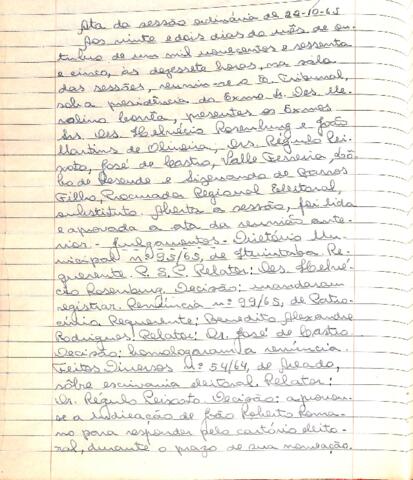 Ata da sessão ordinária de 22-10-65
Aos vinte e dois dias do mês de ou-
tubro de um mil novecentos e sessenta
e cinco, às dezessete horas, na sala
das sessões, reuniu-se o E. Tribunal,
sob a presidência do Exmo Sr. Des.
Costa, presentes os Exmos
Srs. Des. Helvécio Rosenburg e João
Martins de Oliveira, Drs. Régulo Pei-
xoto, José de Castro, Valle Ferreira,
de Resende e de Barros
Filho, Procurador Regional Eleitoral,
substituto. Aberta a sessão, foi lida
e aprovada a ata da reunião ante-
rior. - Julgamentos - Diretório Mu-
nicipal nº 95/65, de Itumirim Re-
querente P. S. P. Relator: Des. Helvé-
cio Rosenburg. Decisão: mandaram
registrar. Renúncia nº 29/65, de Patro-
cínio Requerente: Benedito Alexandre
Rodrigues. Relator: Dr. José de Castro
Decisão: homologaram a renúncia.
Feitos Diversos nº 54/64, de
sôbre escrivania eleitoral. Relator:
Dr. Régulo Peixoto. Decisão: aprovou-
se a indicação de João Roberto Roma-
no para responder pelo cartório eleito-
ral, durante o prazo de sua nomeação.